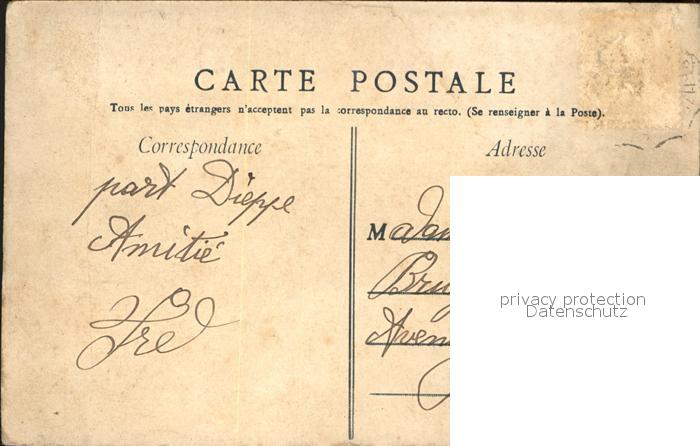 CARTE POSTALE
Tous les pays étrangers n'acceptent pas la correspondance au recto. (Se renseigner à la Poste).
Correspondance
part Dieppe
Amitié
Fred
Adresse
Madam
Bru
Aven
privacy protection
Datenschutz